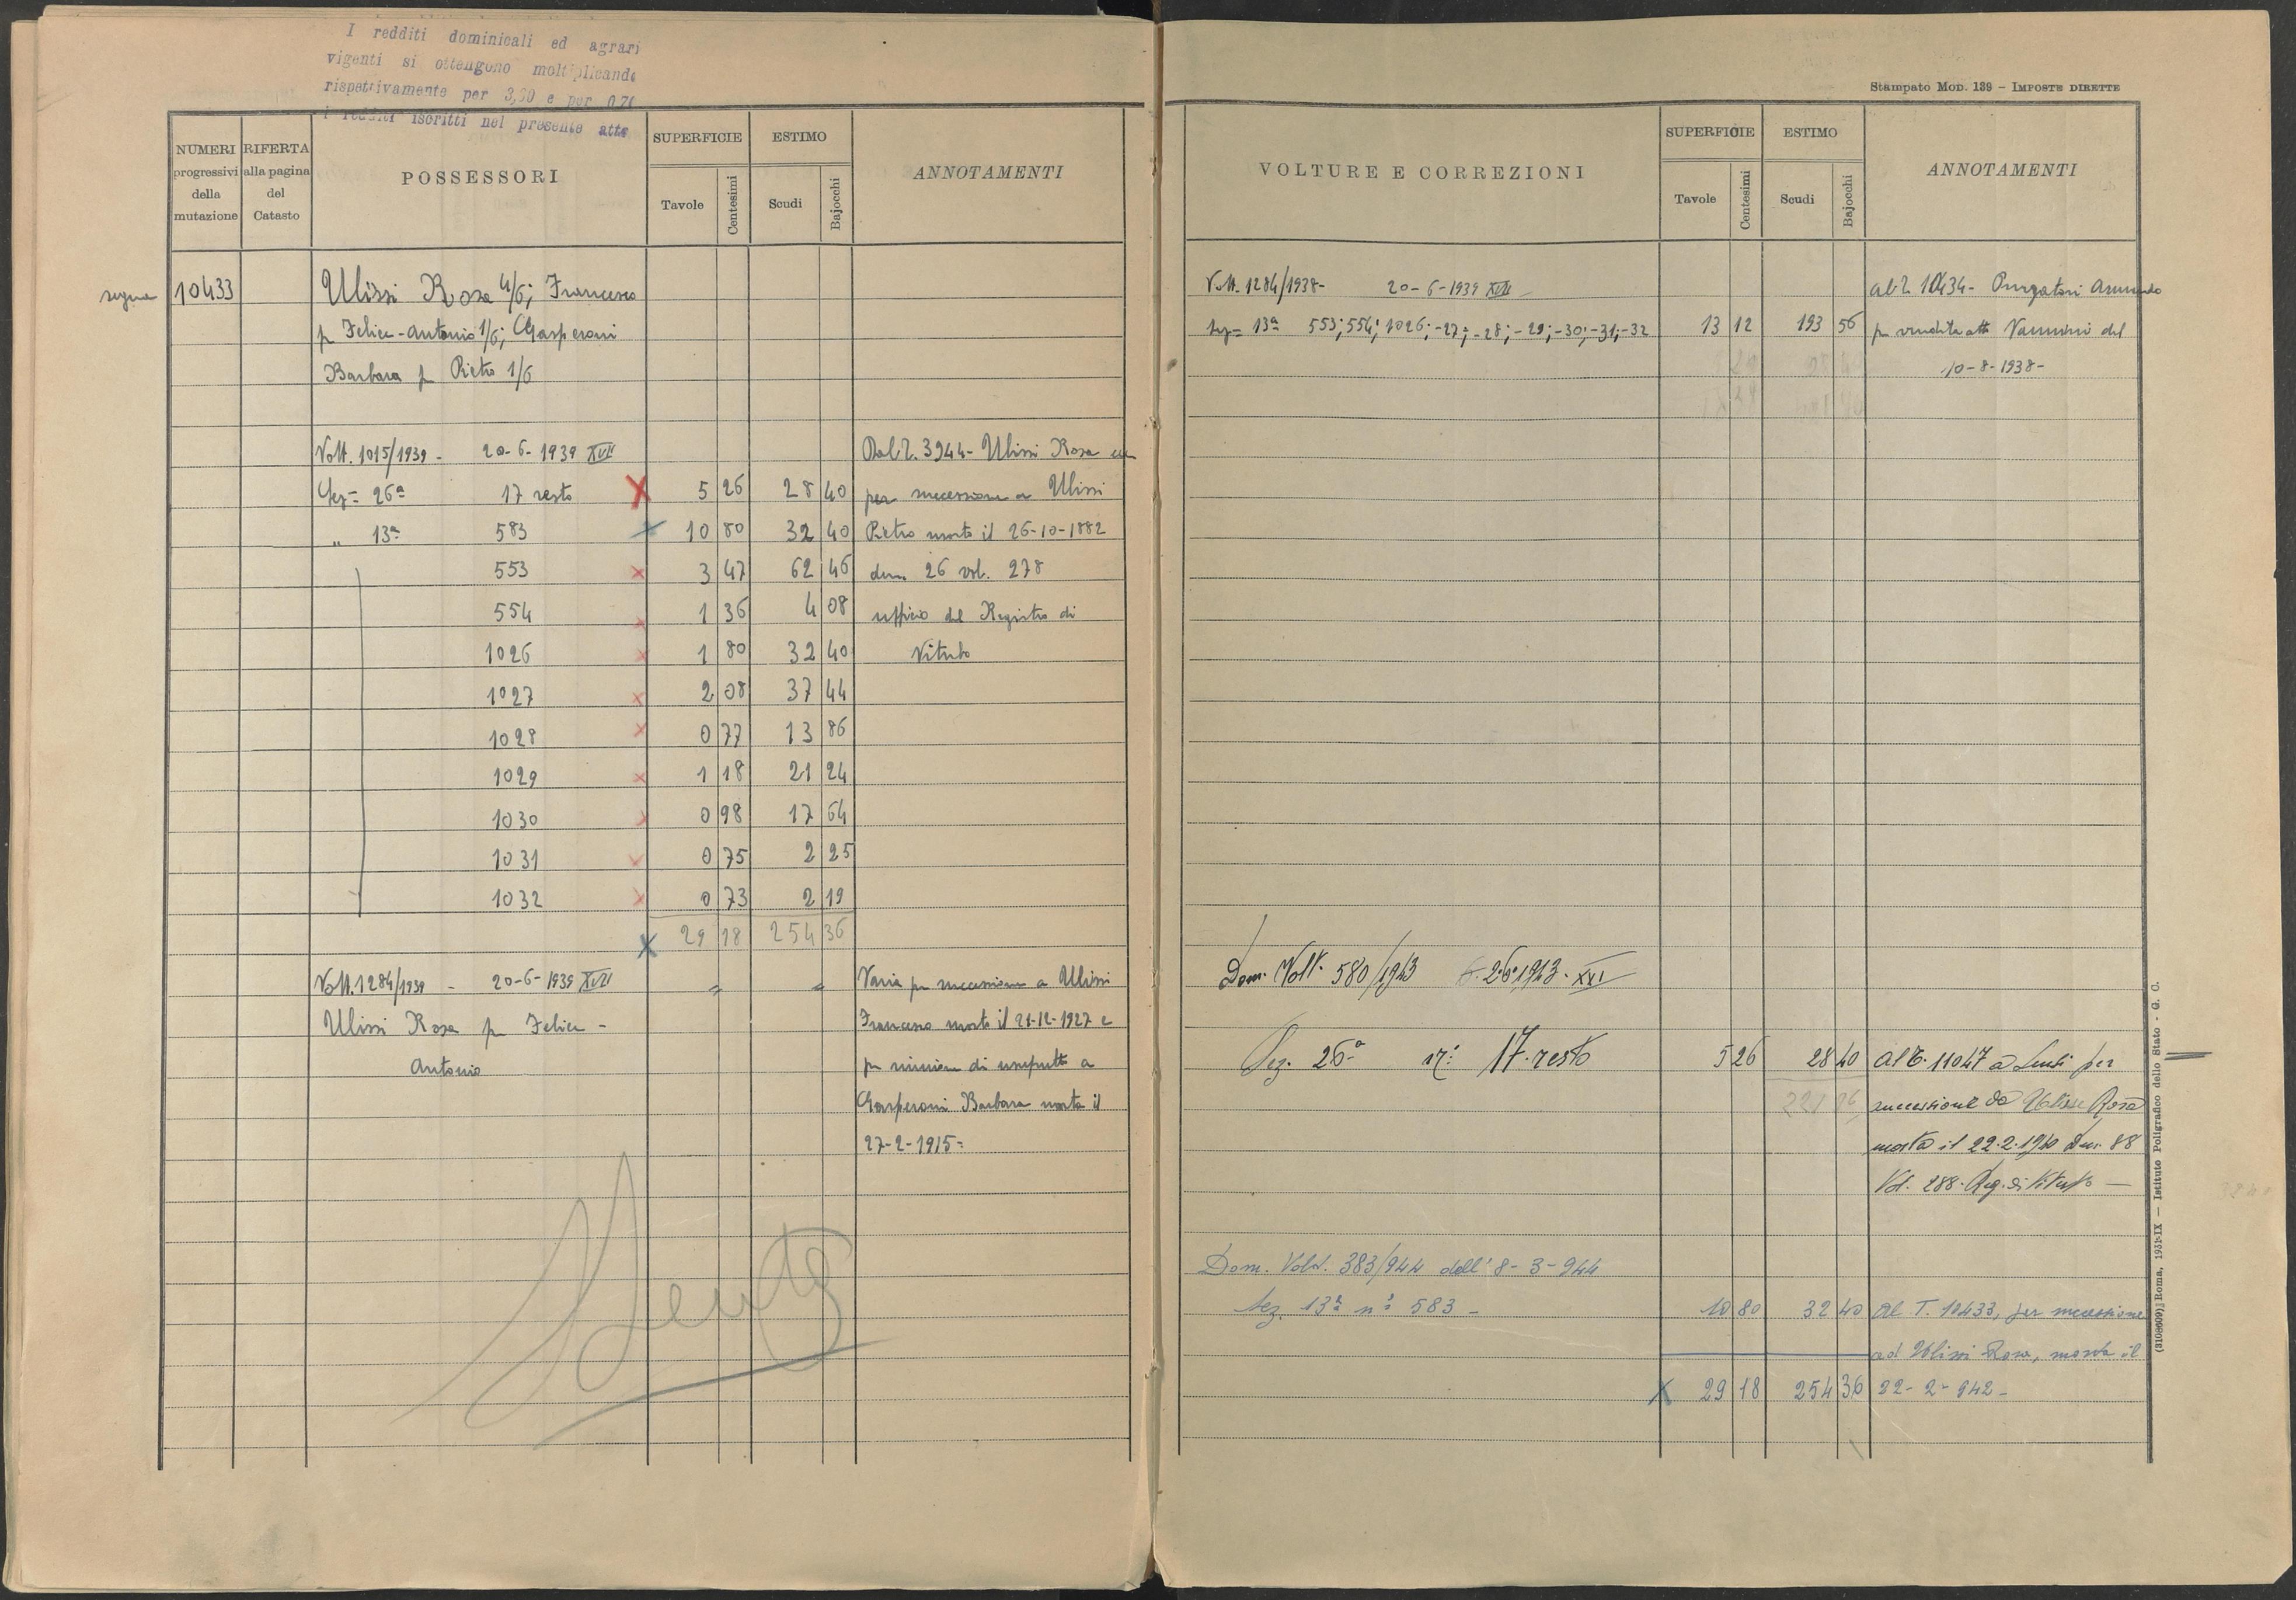 I redditi dominicali ed agrari
vigenti si ottengono moltiplicando
rispettivamente per 3,30 e per 0,70
i redditi iscritti nel presente atto
NUMERI progressivi della mutazione
RIFERTA alla pagina del Catasto
POSSESSORI
SUPERFICIE
Tavole Centesimi
ESTIMO
Scudi Bajocchi
ANNOTAMENTI
segue 10433 Ulissi Rosa 4/6; Francesco
fu Felice-Antonio 1/6; Gasperoni
Barbara fu Pietro 1/6
Volt. 1015/1939 - 20-6-1939 XVII Dal T. 3944 - Ulissi Rosa ecc
Sez= 26ª 17 resto X 5 26 28 40 per successione a Ulissi
" 13ª 583 X 10 80 32 40 Pietro morto il 26-10-1882
553 X 3 47 62 46 den. 26 vol. 278
554 X 1 36 4 08 ufficio del Registro di
1026 X 1 80 32 40 Viterbo
1027 X 2 08 37 44
1028 X 0 77 13 86
1029 X 1 18 21 24
1030 X 0 98 17 64
1031 X 0 75 2 25
1032 X 0 73 2 19
X 29 18 254 36
Volt. 1284/1939 - 20-6-1939 XVII " " Varia per successione a Ulissi
Ulissi Rosa fu Felice - Francesco morto il 21-12-1927 e
Antonio per riunione di usufrutto a
Gasperoni Barbara morta il
27-2-1915=
Stampato Mod. 139 - IMPOSTE DIRETTE
VOLTURE E CORREZIONI
SUPERFICIE
Tavole Centesimi
ESTIMO
Scudi Bajocchi
ANNOTAMENTI
Volt. 1284/1938- 20-6-1939 XVII al T. 10434- Purgatori Armando
Sez= 13ª 553; 554; 1026; -27; -28; -29; -30; -31; -32 13 12 193 56 per vendita atto Vannini del
10-8-1938-
Dom. Volt. 580/1943 2.6.1943. XXI
Sez. 26ª nº: 17. resto 5 26 28 40 Al T. 11047 a per
221 96 successione da Ulissi Rosa
morta il 22.2.1940 Den. 88
Vol. 288. Reg. di Viterbo —
Dom. Volt. 383/944 dell' 8-3-944
Sez. 13ª nº 583 - 10 80 32 40 Al T. 10433, per successione
ad Ulissi Rosa, morta il
X 29 18 254 36 22-2-942-
(3108609) Roma, 1931-IX — Istituto Poligrafico dello Stato - G. C.